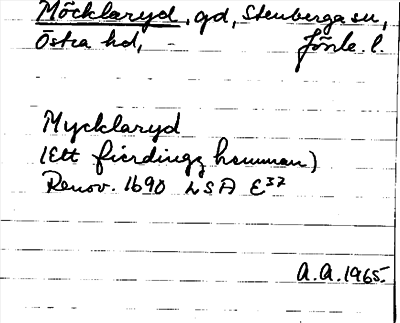 Möcklaryd, gd, Stenberga sn,
Östra hd, - Jönk. l.
Mycklaryd
(Ett fierdingz hemman)
Renov. 1690 LSA E37
A.A. 1965.